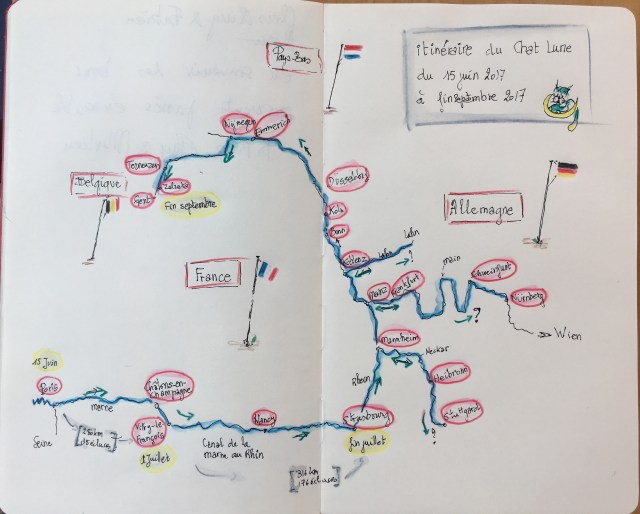 Pays-Bas
itinéraire du Chat Lune
du 15 juin 2017
à fin septembre 2017
Nijmegen
Emmerich
Terneuzen
Zelzate
gent
Fin septembre
Belgique
Düsseldorf
Köln
Bonn
Allemagne
Koblenz
Lahn
Lahn
?
France
Mainz
Frankfurt
main
Schweinfurt
Nürnberg
?
Wien
Mannheim
Neckar
Rhein
Heilbronn
Stuttgart
?
15 Juin
Paris
Seine
marne
Châlons-en-
champagne
Vitry-le-
François
1 Juillet
Canal de la
marne au Rhin
Nancy
Strasbourg
fin juillet